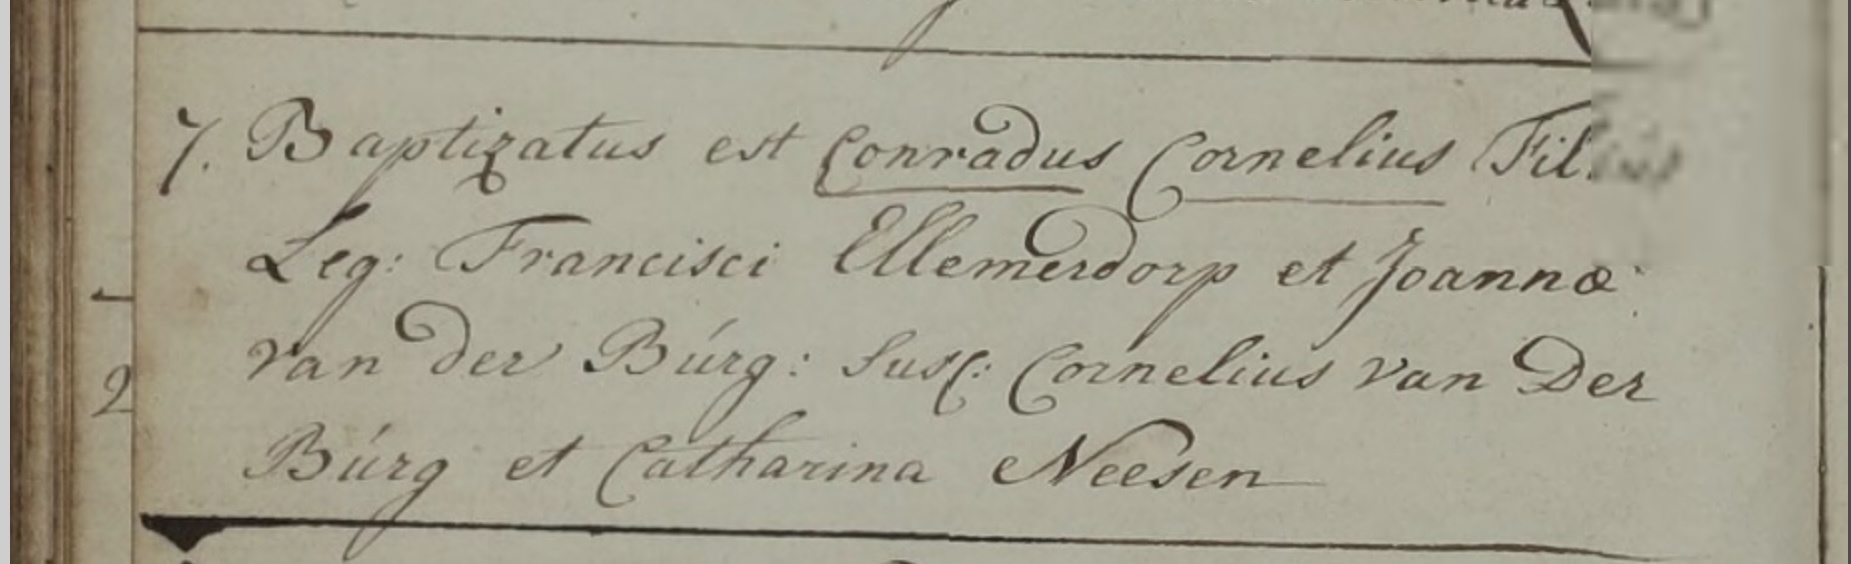 7. Baptizatus est Conradus Cornelius Fil:
Leg: Francisci Ellemerdorp et Joannæ
van der Búrg: Susc: Cornelius van Der
Búrg et Catharina Neesen
2